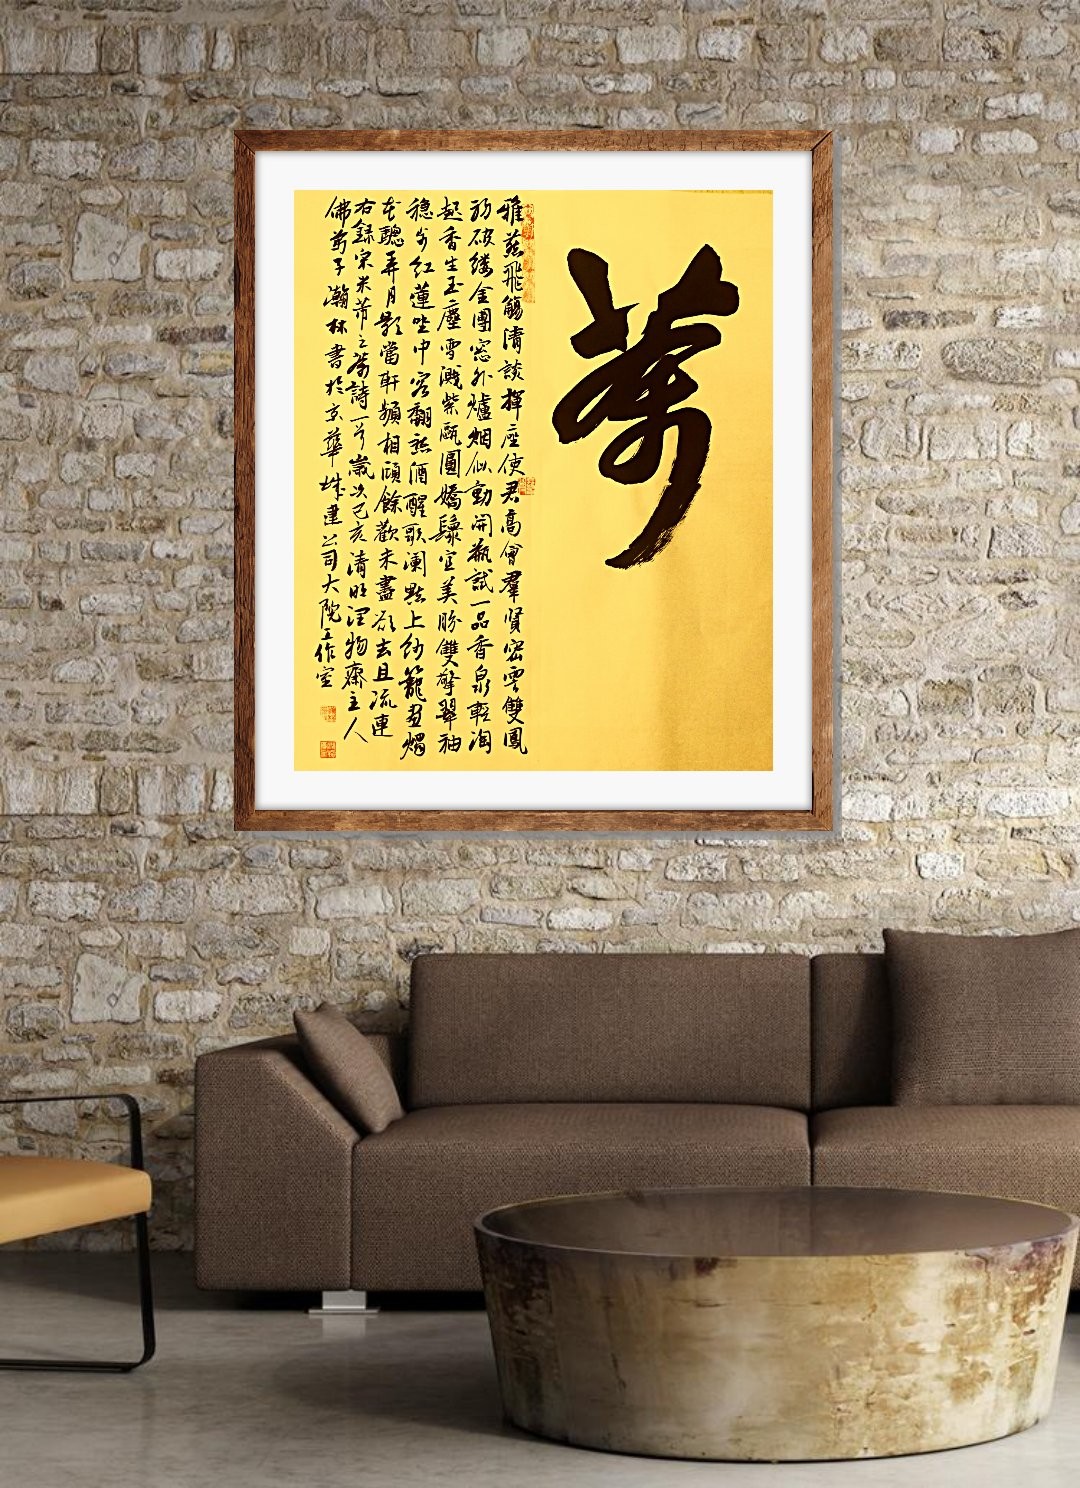 茶
雅燕飛觴清談揮座使君高會羣賢密雲雙鳳
初破縷金團窓外爐烟似動開瓶試一品香泉輕淘
起香生玉塵雪濺紫甌圓嬌鬟宜美盼雙擎翠袖
穏步紅蓮坐中客翻愁酒醒歌闌點上紗籠畫燭
花驄弄月影當軒頻相頋餘歡未盡欲去且流連
右録宋米芾之茶詩一首歲次己亥清明潤物齋主人
佛弟子瀚林書於京華城建公司大院工作室